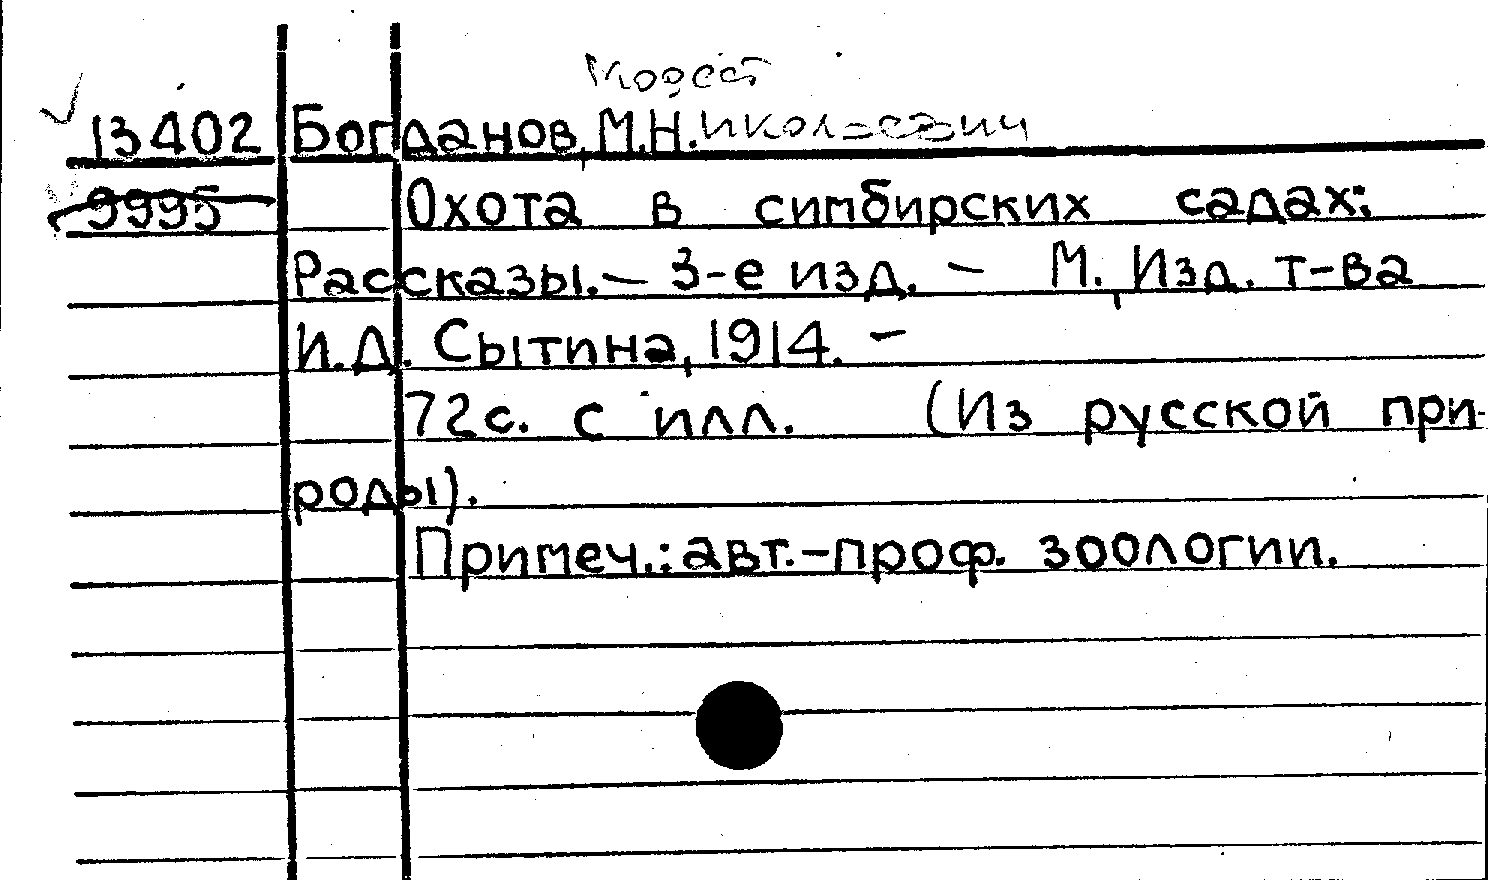 Модест
13402 Богданов, М.Н.иколаевич
9995 Охота в симбирских садах:
Рассказы. — 3-е изд. — М., Изд. т-ва
И.Д. Сытина, 1914. —
72с. с илл. (Из русской при-
роды).
Примеч.: авт.-проф. зоологии.